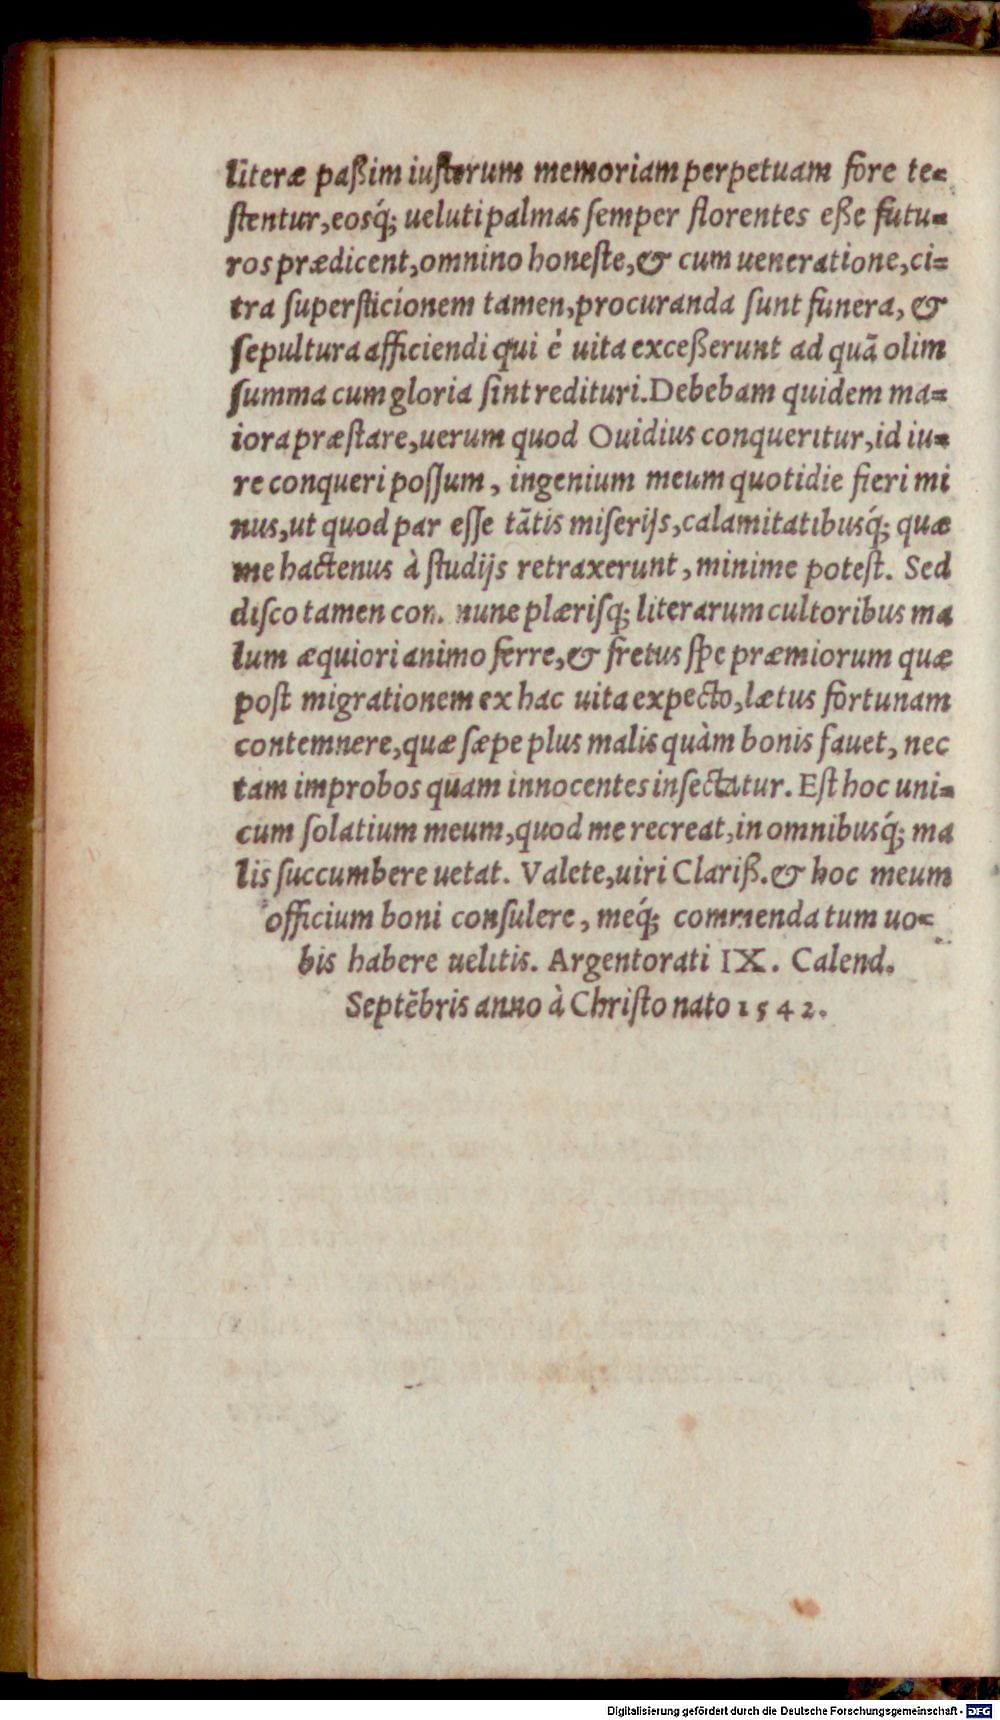 literæ paßim iuſtorum memoriam perpetuam fore te-
ſtentur, eosq́; ueluti palmas ſemper florentes eße futu-
ros prædicent, omnino honeſte, & cum ueneratione, ci-
tra ſuperſticionem tamen, procuranda ſunt funera, &
ſepultura afficiendi qui è uita exceßerunt ad quā olim
ſumma cum gloria ſint redituri. Debebam quidem ma-
iora præſtare, uerum quod Ouidius conqueritur, id iu-
re conqueri poſſum, ingenium meum quotidie fieri mi
nus, ut quod par eſſe tātis miſerijs, calamitatibusq́; quæ
me hactenus à ſtudijs retraxerunt, minime poteſt. Sed
diſco tamen com mune plæriſq; literarum cultoribus ma
lum æquiori animo ferre, & fretus ſpe præmiorum quæ
poſt migrationem ex hac uita expecto, lætus fortunam
contemnere, quæ ſæpe plus malis quàm bonis fauet, nec
tam improbos quam innocentes inſectatur. Eſt hoc uni-
cum ſolatium meum, quod me recreat, in omnibusq́; ma
lis ſuccumbere uetat. Valete, uiri Clariß. & hoc meum
officium boni conſulere, meq́; commendatum uo-
bis habere uelitis. Argentorati IX. Calend.
Septēbris anno à Chriſto nato 1542.
Digitalisierung gefördert durch die Deutsche Forschungsgemeinschaft - DFG